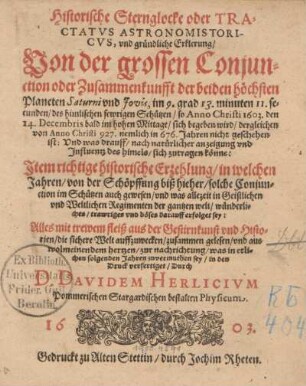 Historische Sternglocke oder TRA-
CTATVS ASTRONOMISTORI-
CVS, vnd gründliche Erklerung/
Von der grossen Conjun-
ction oder Zusammenkunfft der beiden höchsten
Planeten Saturni vnd Jovis, im 9. grad 13. minuten 11. se-
cunden/ des himlischen fewrigen Schützen/ so Anno Christi 1603. den
24. Decembris bald im hohen Mittage/ sich begeben wird/ dergleichen
von Anno Christi 927. nemlich in 676. Jahren nicht geschehen
ist: Vnd was drauff/ nach natürlicher anzeigung vnd
Influentz des himels/ sich zutragen könne:
Item richtige historische Erzehlung/ in welchen
Jahren/ von der Schöpffung biß hieher/ solche Conjunc-
tion im Schützen auch gewesen/ vnd was allezeit in Geistlichen
vnd Weltlichen Regimenten der gantzen welt/ wünderli-
ches/ trawriges vnd böses darauff erfolget sey:
Alles mit trewem fleiß aus der Gestirnkunst vnd Histo-
rien/ die sichere Welt auffzuwecken/ zusammen gelesen/ vnd aus
wolmeinendem hertzen/ zur nachrichtung/ was in etli-
chen folgenden Jahren zuvermuthen sey/ in den
Druck verfertiget/ Durch
D. DAVIDEM HERLICIVM
Pommerischen Stargardischen bestalten Physicum.
Ex Biblioth.
Universitatis
Frider. Guil.
Berolin.
RБ
404
16 03.
Gedruckt zu Alten Stettin/ durch Jochim Rheten.